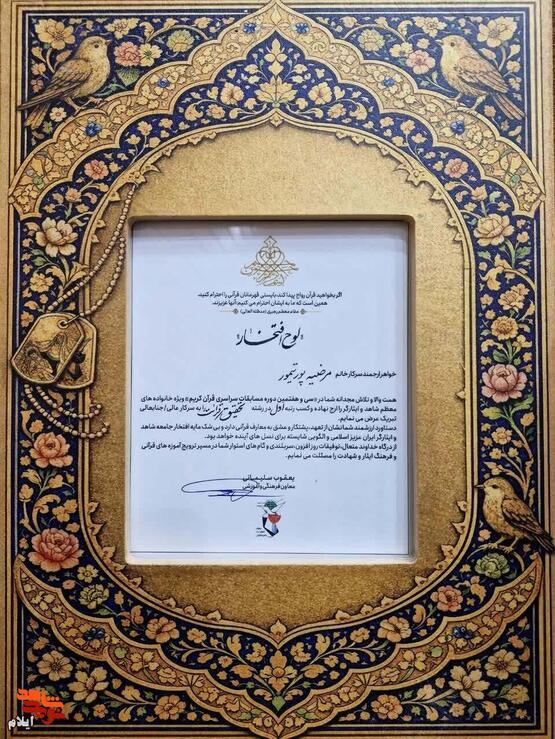 اگر بخواهید قرآن رواج پیدا کند، بایستی قهرمانان قرآنی را احترام کنید.
همین است که ما به ایشان احترام می کنیم؛ آنها عزیزند.
مقام معظم رهبری (مدظله العالی)
«لوح افتخار»
خواهر ارجمند سرکار خانم مرضیه پورتیمور
همت والا و تلاش مجدانه شما در «سی و هفتمین دوره مسابقات سراسری قرآن کریم» ویژه خانواده های
معظم شاهد و ایثارگر را ارج نهاده و کسب رتبه اول در رشته تحقیق قرآنی را به سرکار عالی/ جنابعالی
تبریک عرض می نمایم.
دستاورد ارزشمند شما نشان از تعهد، پشتکار و عشق به معارف قرآنی دارد و بی شک مایه افتخار جامعه شاهد
و ایثارگر ایران عزیز اسلامی و الگویی شایسته برای نسل های آینده خواهد بود.
از درگاه خداوند متعال، توفیقات روز افزون، سربلندی و گام های استوار شما در مسیر ترویج آموزه های قرآنی
و فرهنگ ایثار و شهادت را مسئلت می نمایم.
یعقوب سلیمانی
معاون فرهنگی و آموزشی
نوید شاهد
ایلام